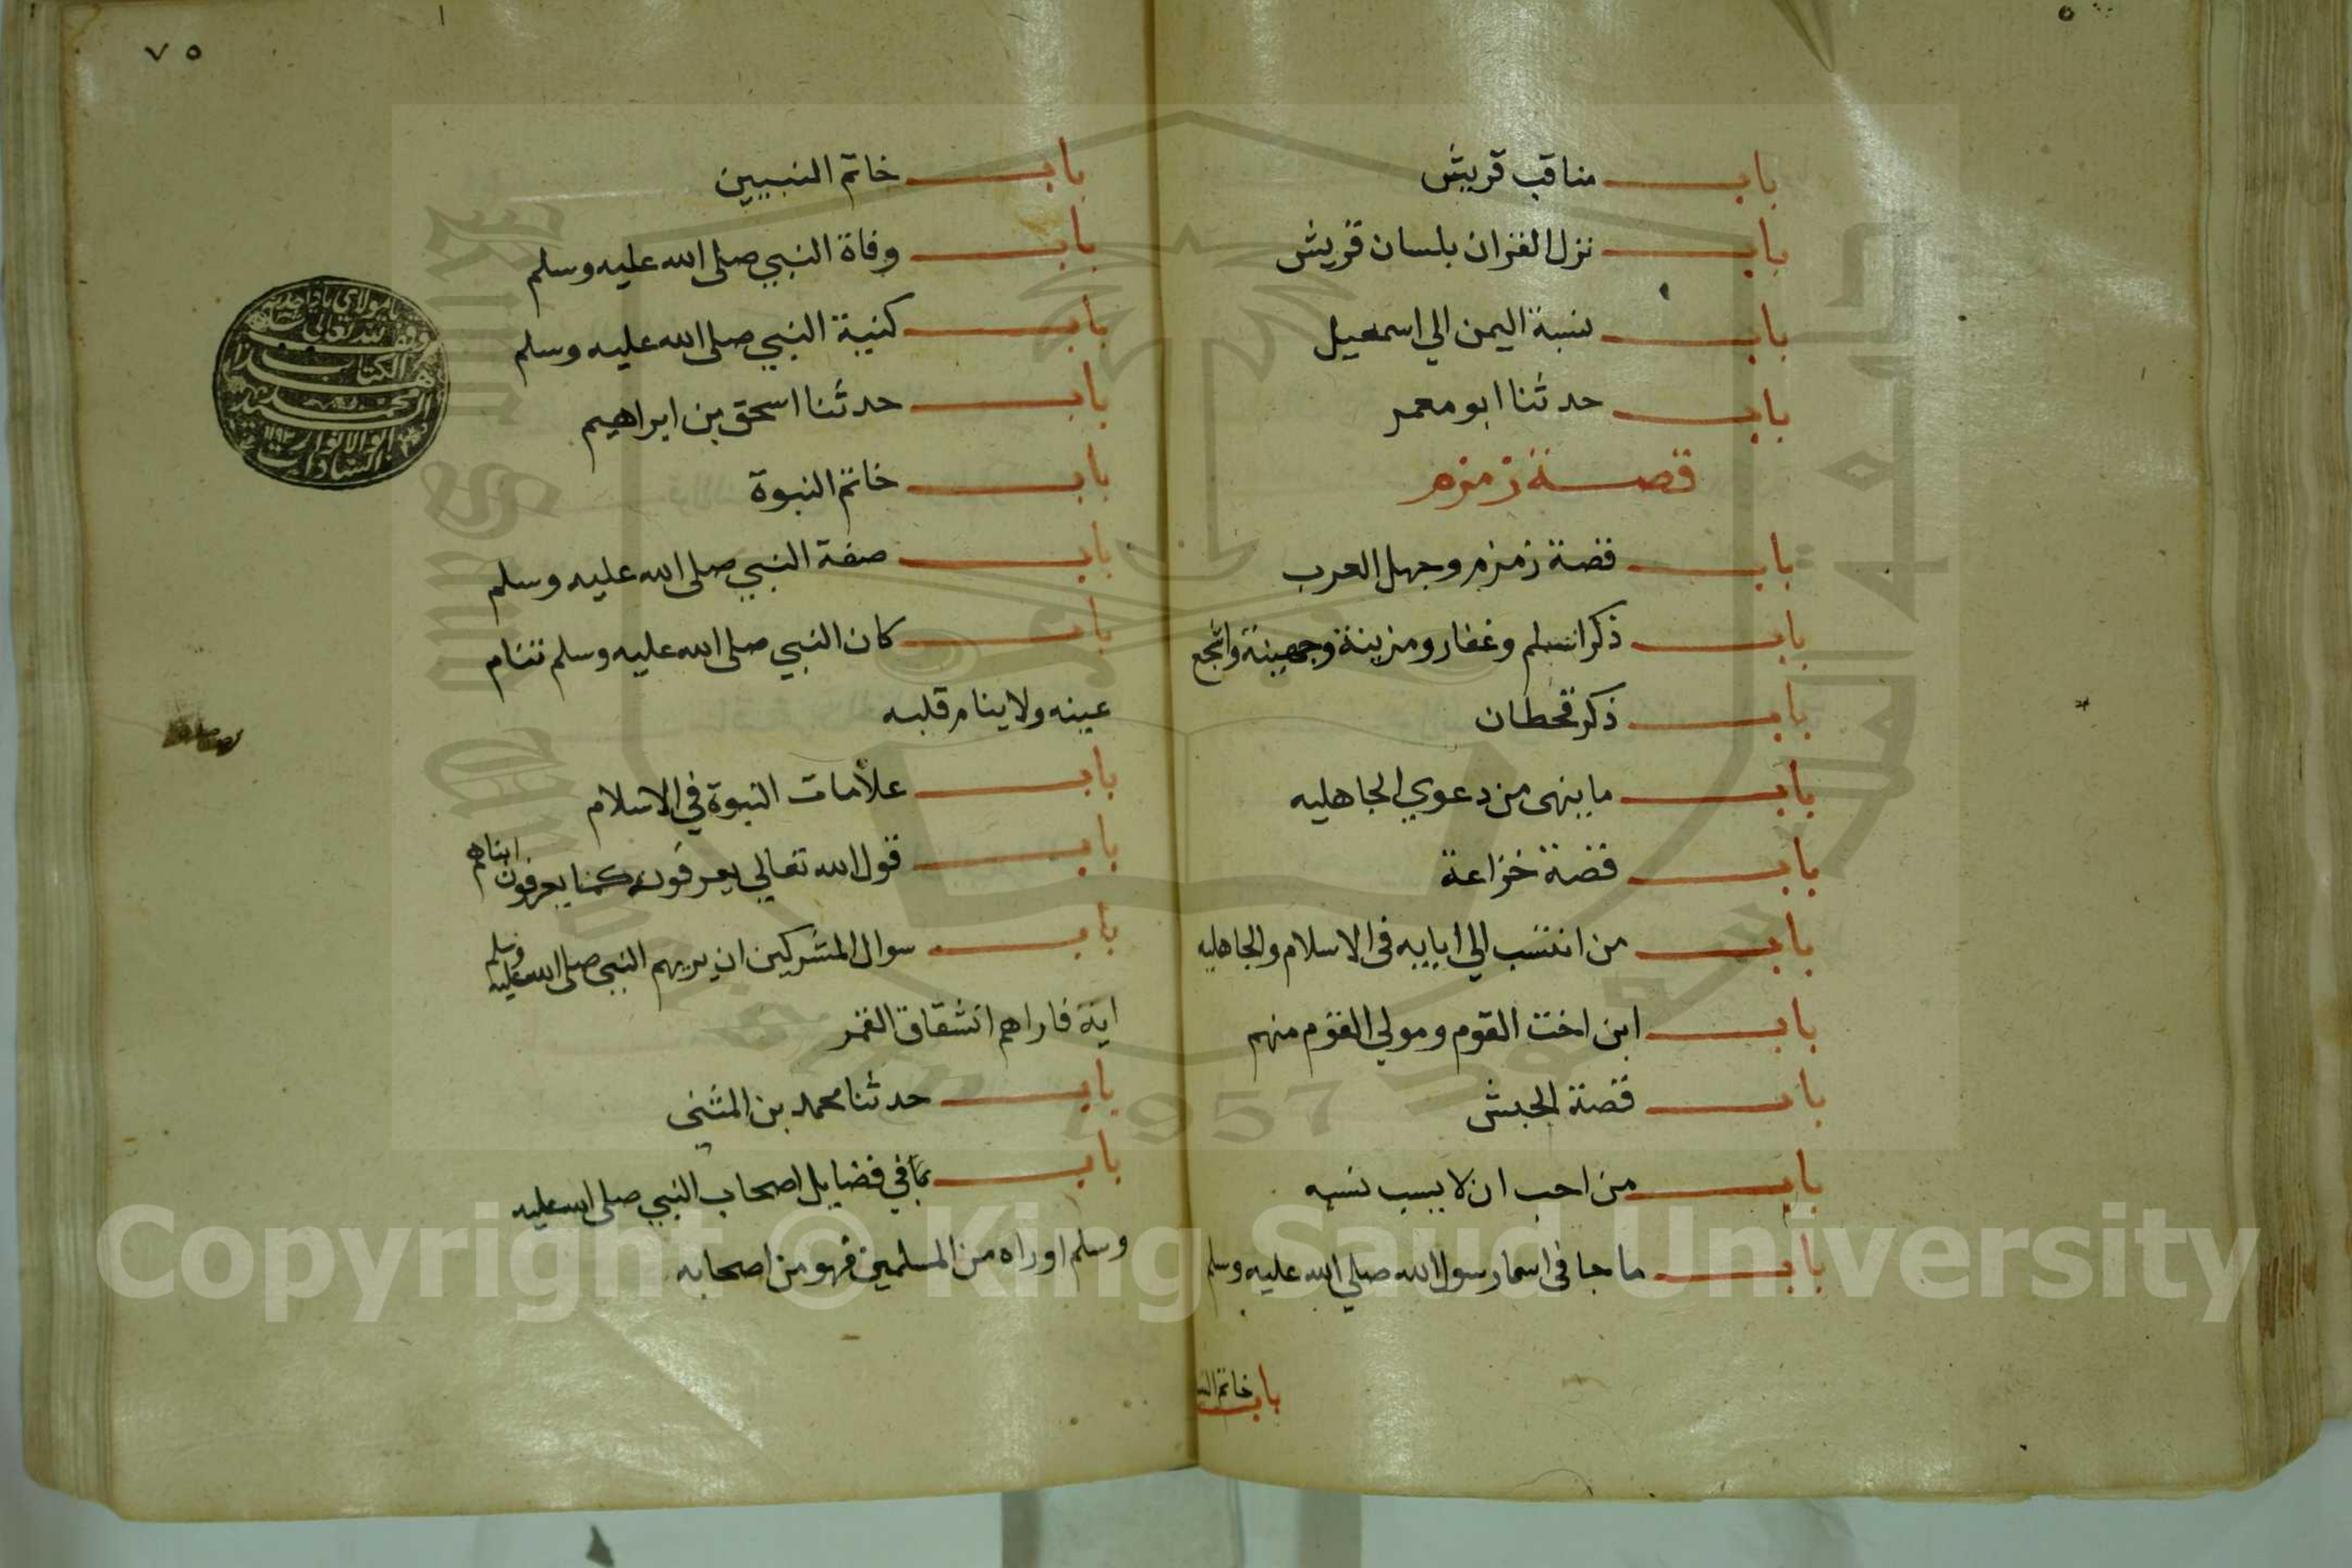 باب مناقب قريش
باب نزل القران بلسان قريش
باب نسبة اليمن الي اسمعيل
باب حدثنا ابو معمر
قصة زمزم
باب قصة زمزم وجهل العرب
باب ذكر اسلم وغفار ومزينة وجهينة واشجع
باب ذكر قحطان
باب ما ينهى من دعوي الجاهليه
باب قصة خزاعة
باب من انتسب الي ابايه فى الاسلام والجاهليه
باب ابن اخت القوم ومولي القوم منهم
باب قصة الحبش
باب من احب ان لا يسب نسبه
باب ما جا فى اسما رسول الله صلي الله عليه وسلم
باب خاتم
٧٥
باب خاتم النبيين
باب وفاة النبي صلى الله عليه وسلم
باب كنية النبي صلى الله عليه وسلم
باب حدثنا اسحق بن ابراهيم
باب خاتم النبوة
باب صفة النبي صلى الله عليه وسلم
باب كان النبي صلى الله عليه وسلم تنام
عينه ولا ينام قلبه
باب علامات النبوة في الاسلام
باب قول الله تعالي يعرفونه كما يعرفون ابناهم
باب سوال المشركين ان يريهم النبي صلى الله عليه وسلم
اية فاراهم انشقاق القمر
باب حدثنا محمد بن المثنى
باب في فضايل اصحاب النبي صلى الله عليه
وسلم او راه من المسلمين فهو من اصحابه
يا مولاي يا واحد
وقف لله تعالى
هذا الكتاب
السيد محمد
ابو الانوار
السادات
١١٩٢
King Saud University
1957
Copyright © King Saud University